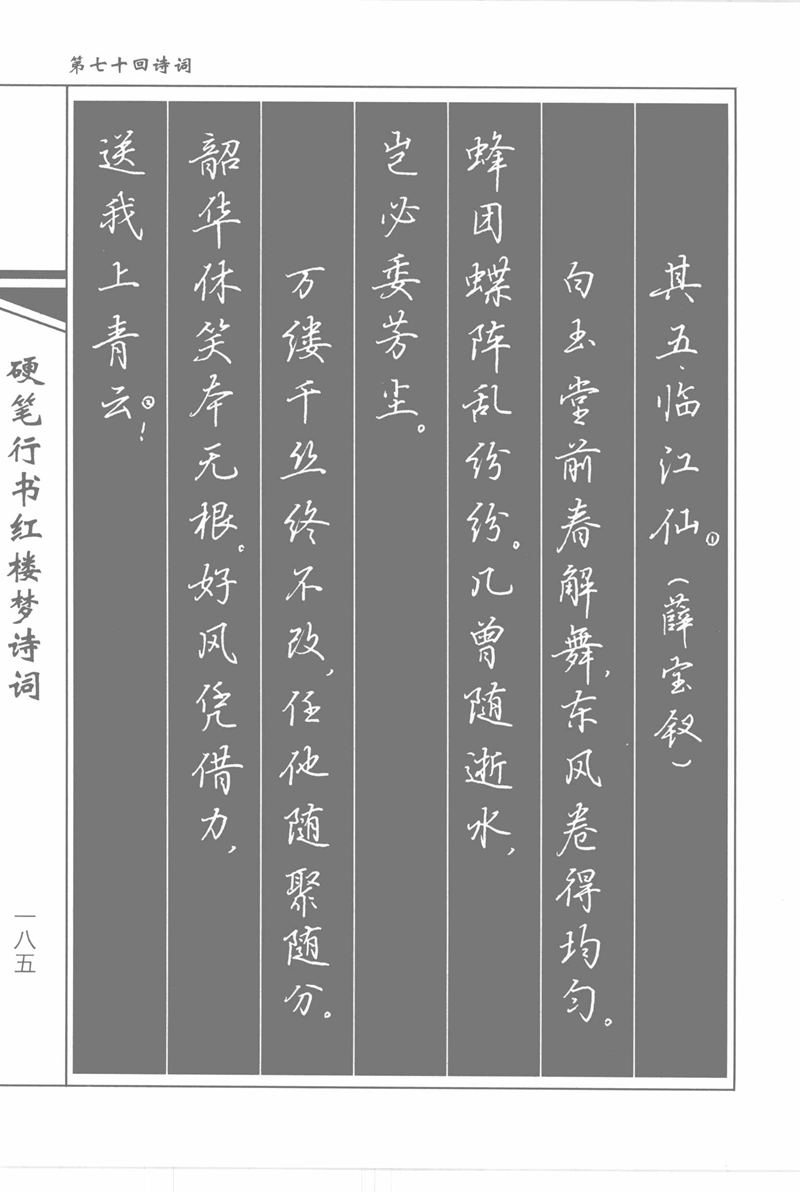 第七十回诗词
其五·临江仙①（薛宝钗）
白玉堂前春解舞，东风卷得均匀。
蜂团蝶阵乱纷纷。几曾随逝水，
岂必委芳尘。
万缕千丝终不改，任他随聚随分。
韶华休笑本无根。好风凭借力，
送我上青云②！
硬笔行书红楼梦诗词
一八五